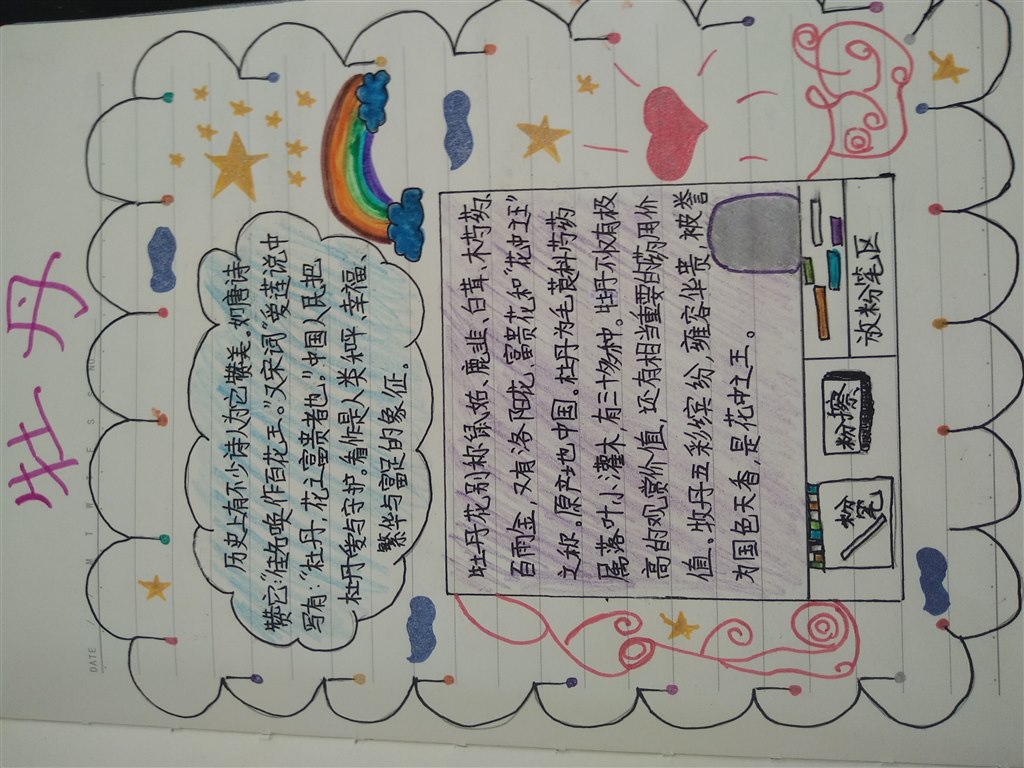 牡丹
DATE
M T W T F S S
历史上有不少诗人为它赞美。如唐诗
赞它:"佳名唤作百花王。"又宋词"爱莲说中
写有:"牡丹,花之富贵者也。"中国人民把
牡丹爱与守护。看作是人类和平、幸福、
繁华与富足的象征。
牡丹花别称鼠姑、鹿韭、白茸、木芍药、
百雨金,又有洛阳花、富贵花和"花中之王"
之称。原产地中国。牡丹为毛茛科芍药
属落叶小灌木,有三十物种。牡丹不仅有极
高的观赏价值,还有相当重要的药用价
值、牧丹五彩缤纷,雍容华贵、被誉
为国色天香,是花中之王。
粉笔
粉擦
放粉笔区